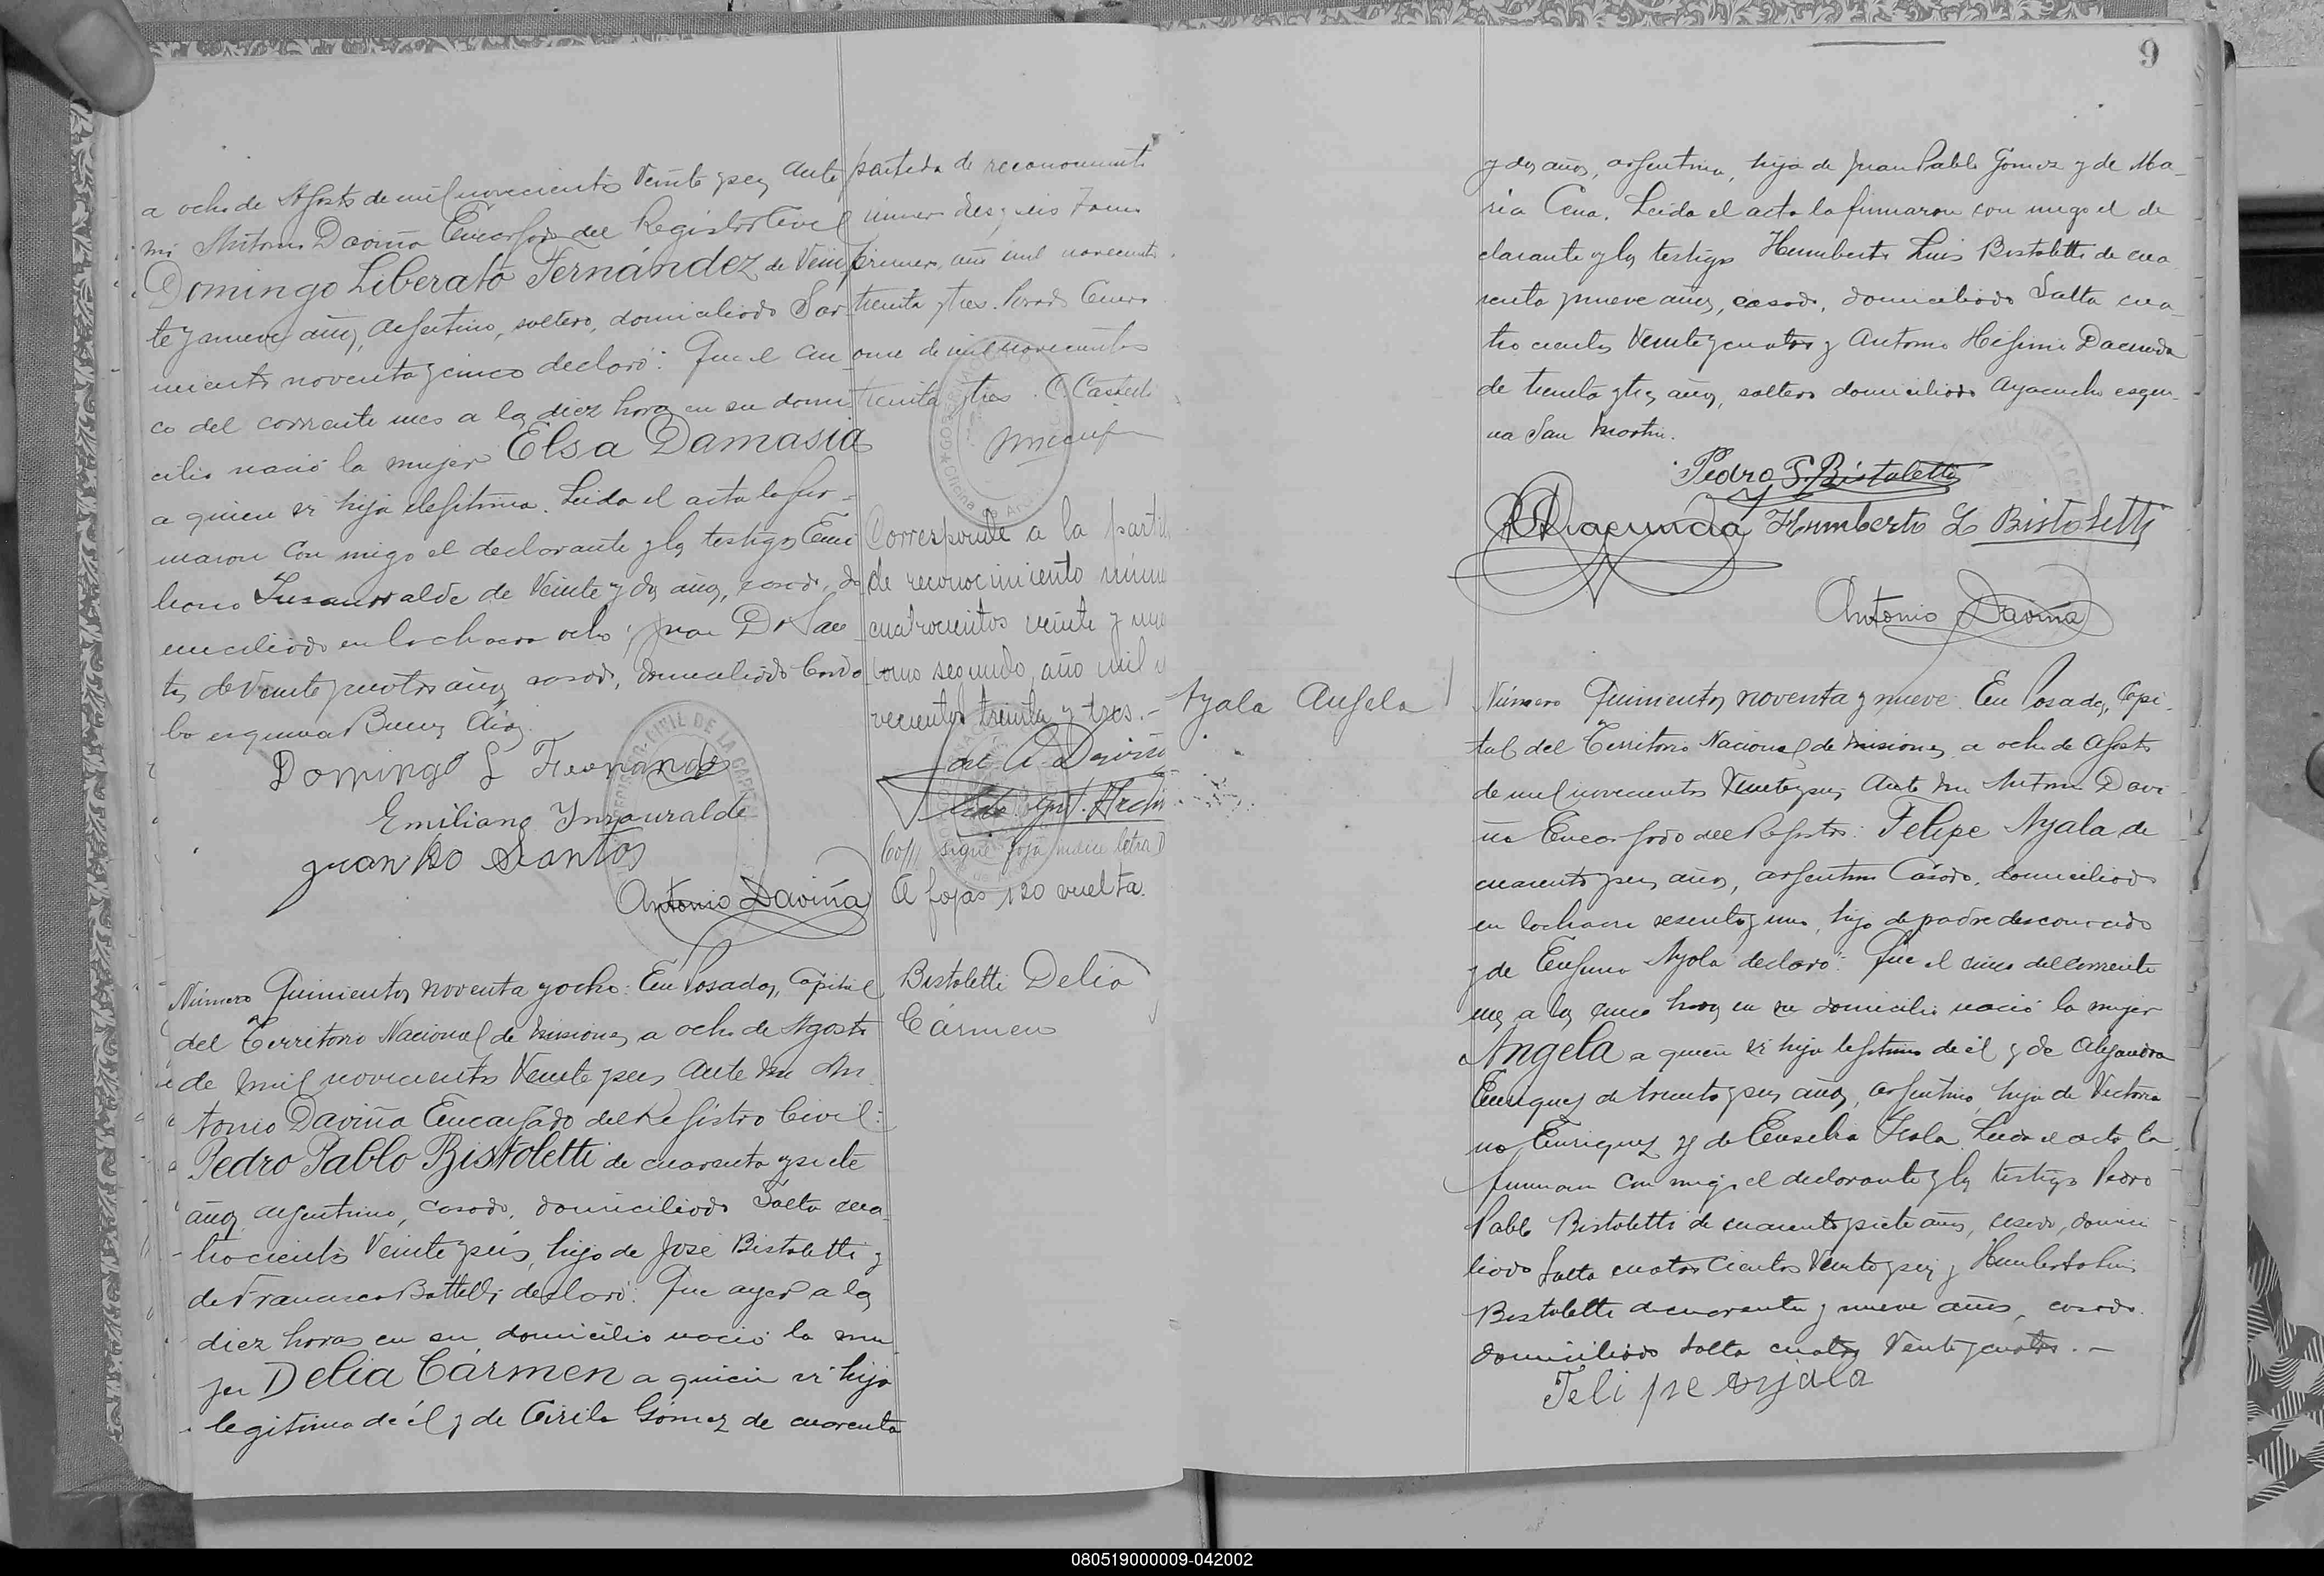 a ocho de Agosto de mil novecientos Veinte y seis, Ante
mi Antonio Daviña Encargado del Registro Civil
Domingo Liberato Fernández de Vein
te y nueve años, Argentino, soltero, domiciliado Sar
miento noventa y cinco declaró: Que el cin
co del corriente mes a las diez horas en su domi
cilio nació la mujer Elsa Damasia
a quien vi hija ilegitima. Leida el acta la fir-
maron con migo el declarante y los testigos Emi
liano Insaurralde de Veinte y dos años, casado, do
miciliado en la chacra ocho y Juan Do San
tos de Veinte y cuatro años casado, domiciliado Cordo
ba esquina Buenos Aires.
Domingo L Fernandez
Emiliano Insauralde
Juan Do Santos
Antonio Daviña
partida de reconocimiento
numero diez y seis Tomo
primero, año mil novecientos
treinta y tres. Posadas Enero
once de mil novecientos
treinta y tres.
Corresponde a la parti
de reconocimiento núme
cuatrocientos veinte y uno
tomo segundo, año mil n
vecientos treinta y tres.-
A. Daviña
sigue foja indice letra D
A fojas 120 vuelta.
Número Quinientos noventa y ocho: En Posadas, Capital
del Territorio Nacional de Misiones a ocho de Agosto
de mil novecientos Veinte y seis Ante mi An
tonio Daviña Encargado del Registro Civil:
Pedro Pablo Bistoletti de cuarenta y siete
años argentino, casado, domiciliado Salta cua
trocientos Veinte y seis, hijo de José Bistoletti y
de Francisca Battelli declaró: Que ayer a las
diez horas en su domicilio nació la mu
jer Delia Cármen a quien vi hija
legitima de él y de Cirila Gómez de cuarenta
Bistoletti Delia
Cármen
9
y dos años, argentina, hija de Juan Pablo Gómez y de Ma-
ria Cena. Leida el acta la firmaron con migo el de
clarante y los testigos Humberto Luis Bistoletti de cua
renta y nueve años, casado, domiciliado Salta cua-
tro cientos Veinte y cuatro y Antonio Higinio Dacunda
de treinta y tres años, soltero domiciliado Ayacucho esqui-
na San Martin.
Pedro P. Bistoletti
Humberto L Bistoletti
Antonio Daviña
Ayala Angela
Número Quinientos noventa y nueve. En Posadas, Capi-
tal del Territorio Nacional de Misiones a ocho de Agosto
de mil novecientos Veinte y seis Ante mi Antonio Davi
ña Encargado del Registro: Felipe Ayala de
cuarenta y seis años, argentino Casado, domiciliado
en la chacra sesenta y uno, hijo de padre desconocido
y de Eufema Ayala declaró: Que el cinco del corriente
mes a las cinco horas en su domicilio nació la mujer
Angela a quien vi hija legitima de él y de Alejandra
Enriquez de treinta y seis años, argentina, hija de Victoria
no Enriquez y de Eusebia Isola. Leida el acta la
firmaron con migo el declarante y los testigos Pedro
Pablo Bistoletti de cuarenta y siete años, casado, domici
liado Salta cuatro cientos Veinte y seis y Humberto Luis
Bistoletti de cuarenta y nueve años, casado.
domiciliado Salta cuatro Veinte y cuatro.-
Felipe Ayala
080519000009-042002